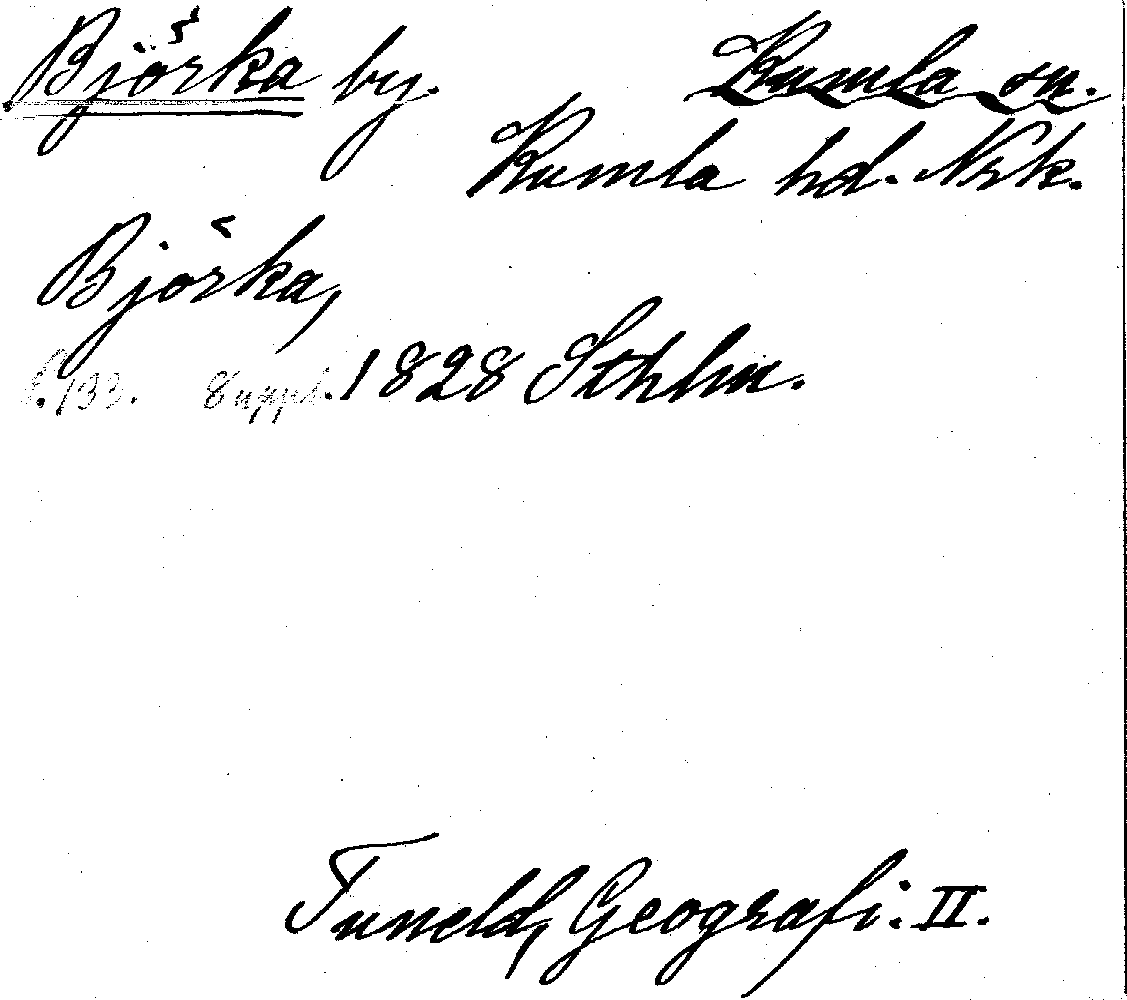 Björka by. Kumla sn.
Kumla hd. Nrk.
Björka,
s. 133. Suppl. 1828 Sthlm.
Tuneld, Geografi. II.